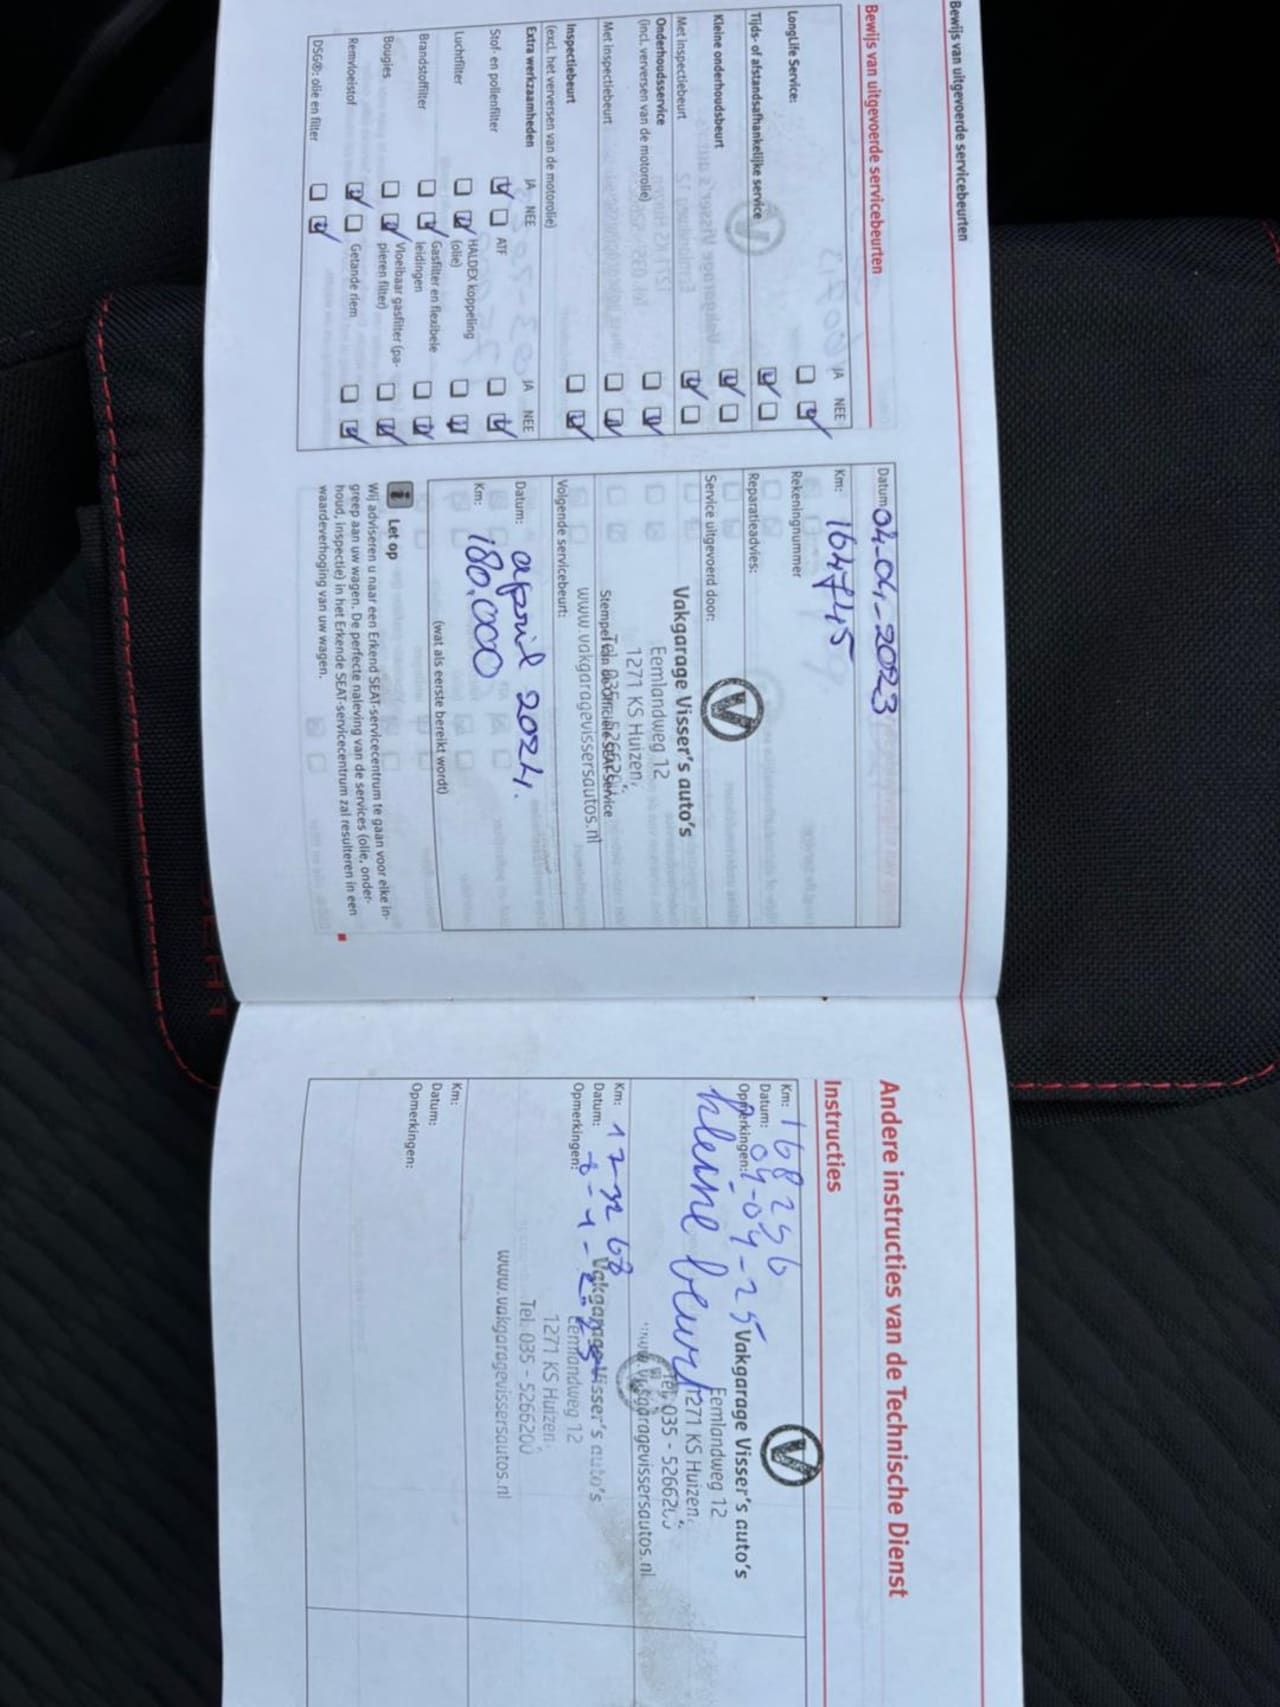 Bewijs van uitgevoerde servicebeurten
Bewijs van uitgevoerde servicebeurten
JA NEE
LongLife Service:
Tijds- of afstandsafhankelijke service
Kleine onderhoudsbeurt
Met inspectiebeurt
Onderhoudsservice
(incl. verversen van de motorolie)
Met inspectiebeurt
Inspectiebeurt
(excl. het verversen van de motorolie)
Extra werkzaamheden JA NEE JA NEE
Stof- en pollenfilter ATF
Luchtfilter HALDEX koppeling
(olie)
Brandstoffilter Gasfilter en flexibele
leidingen
Bougies Vloeibaar gasfilter (pa-
pieren filter)
Remvloeistof Getande riem
DSG®: olie en filter
Datum: 04-04-2023
Km: 164745
Rekeningnummer
Reparatieadvies:
Service uitgevoerd door:
Vakgarage Visser's auto's
Eemlandweg 12
1271 KS Huizen,
www.vakgaragevissersautos.nl
Volgende servicebeurt:
Datum: april 2024.
Km: 180.000
(wat als eerste bereikt wordt)
Let op
Wij adviseren u naar een Erkend SEAT-servicecentrum te gaan voor elke in-
greep aan uw wagen. De perfecte naleving van de services (olie, onder-
houd, inspectie) in het Erkende SEAT-servicecentrum zal resulteren in een
waardeverhoging van uw wagen.
Andere instructies van de Technische Dienst
Instructies
Km: 168296
Datum: 04-04-25
Opmerkingen:
kleine beurt
Vakgarage Visser's auto's
Eemlandweg 12
1271 KS Huizen,
Tel. 035 - 5266200
www.vakgaragevissersautos.nl
Km:
Datum:
Opmerkingen:
Vakgarage Visser's auto's
Eemlandweg 12
1271 KS Huizen,
Tel. 035 - 5266200
www.vakgaragevissersautos.nl
Km:
Datum:
Opmerkingen:
SEAT